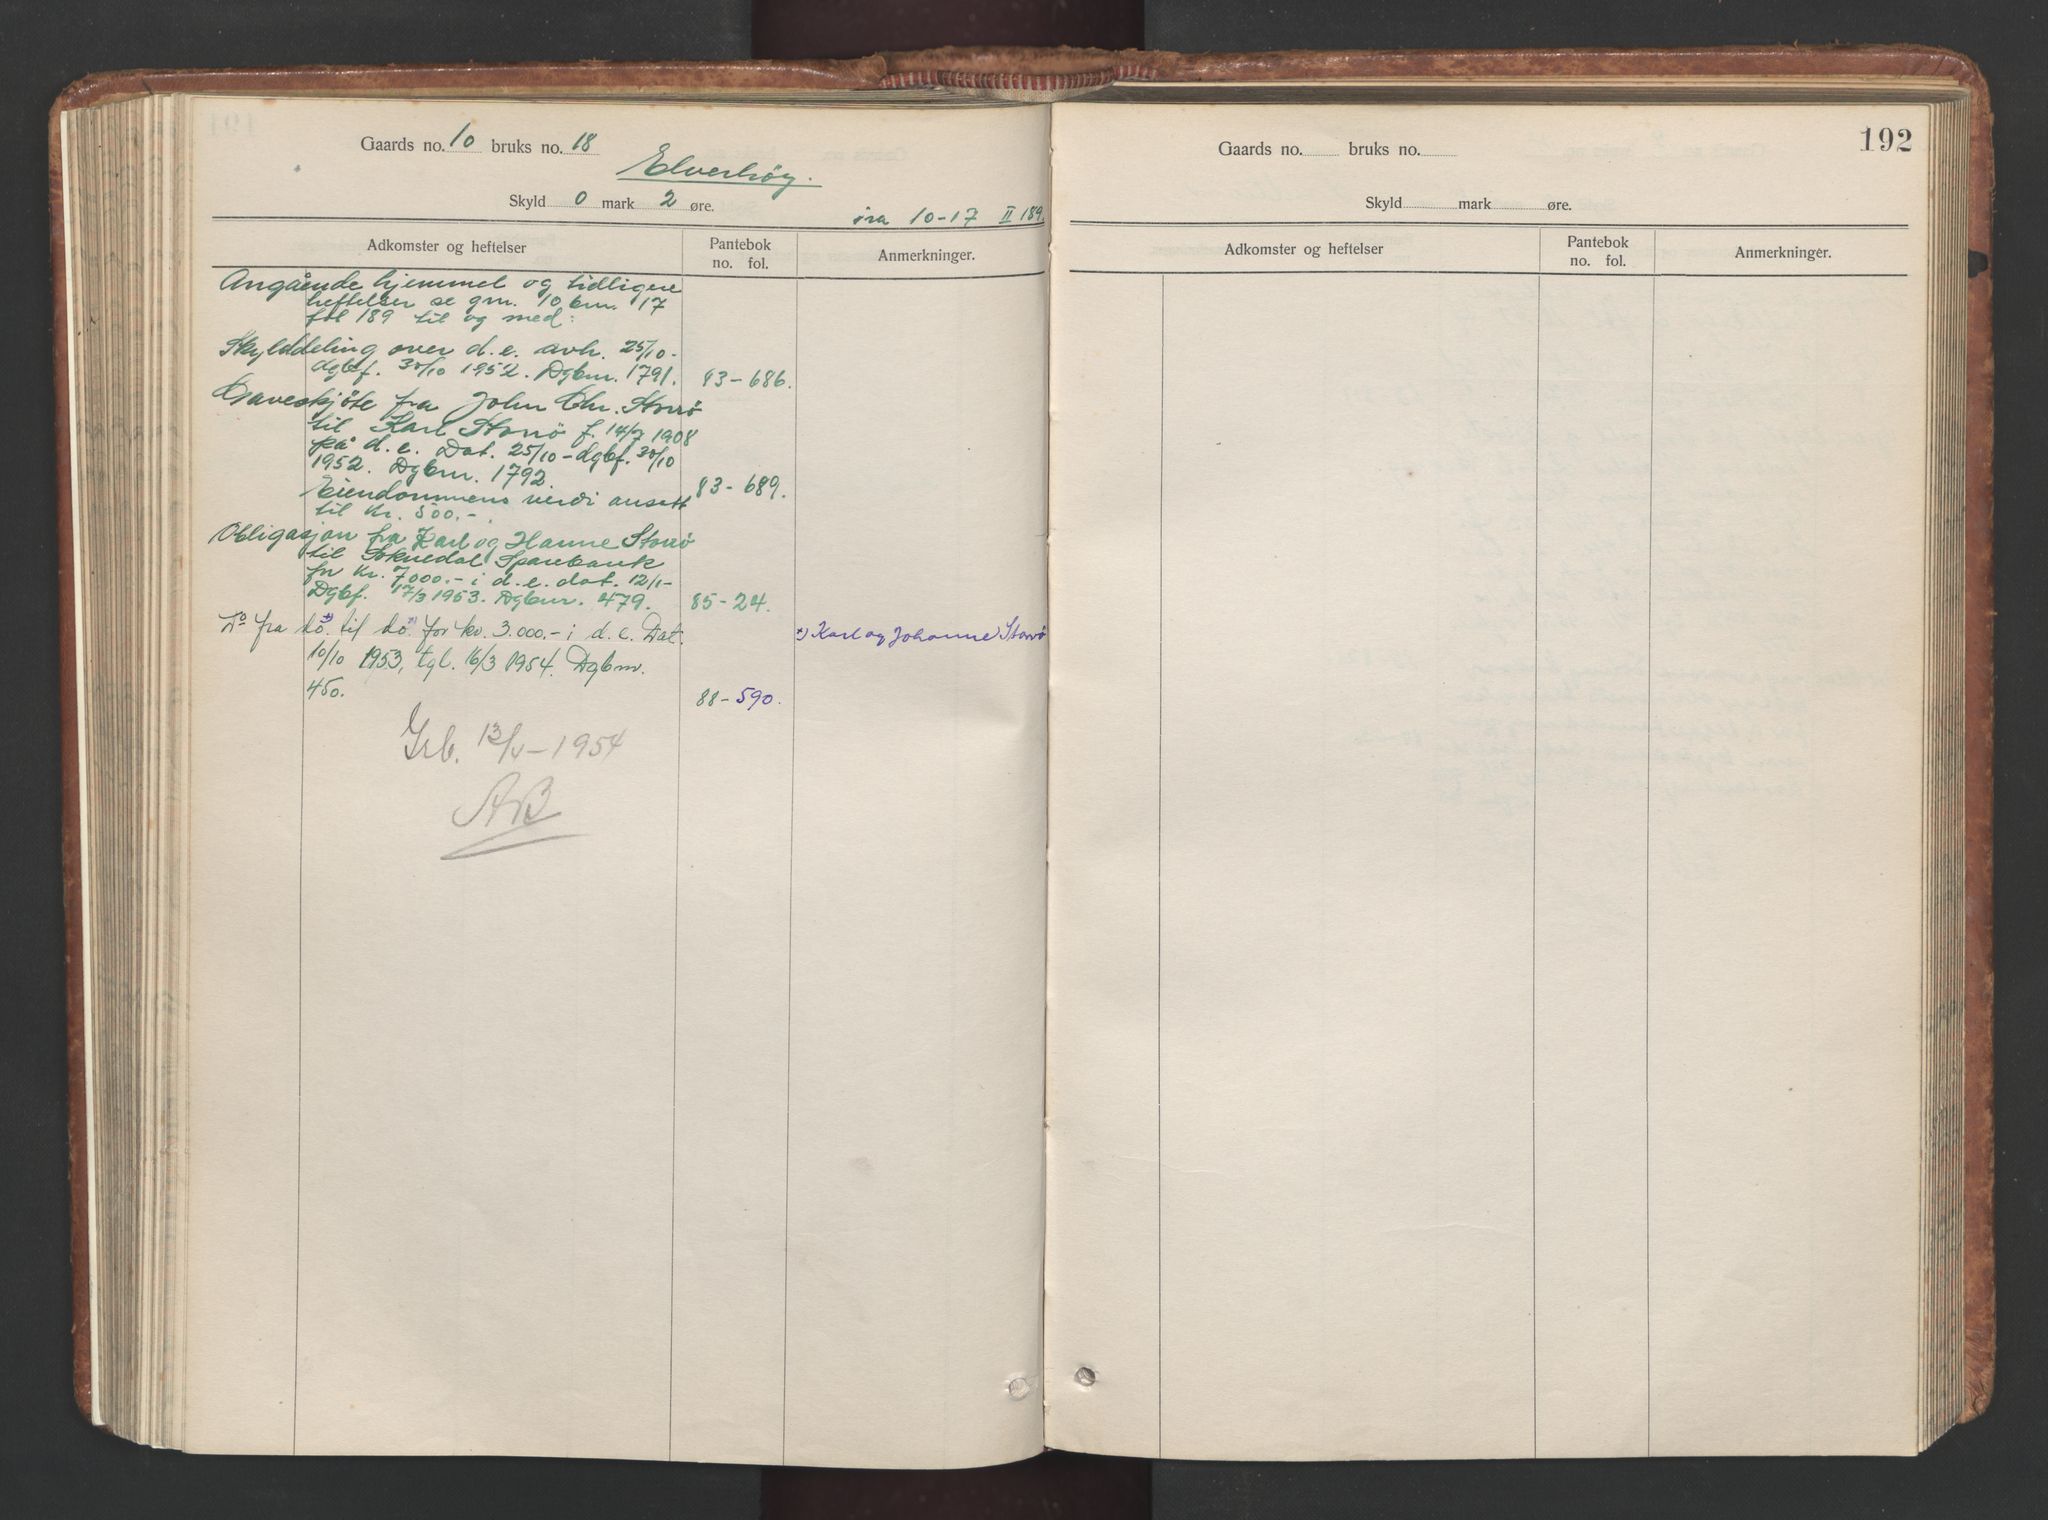 Gaards no. 10 bruks no. 18
Elverhøy.
Skyld 0 mark 2 øre.
fra 10-17 II 189.
Adkomster og heftelser
Pantebok
no. fol.
Anmerkninger.
Angående hjemmel og tidligere
heftelser se gnr. 10 bnr. 17
fol 189 til og med:
Skylddeling over d.e. avh. 25/10-
dgbf. 30/10 1952. Dgbnr. 1791. 83-686.
Gaveskjøte fra John Chr. Storrø
til Karl Storrø f. 14/7 1908
på d.e. Dat. 25/10-dgbf. 30/10
1952. Dgbnr. 1792. 83-689.
Eiendommens verdi ansatt
til kr. 500.-.
Obligasjon fra Karl og Hanne Storrø
til Soknedal Sparebank
for kr. 7000.- i d.e. dat. 12/1-
Dgbf. 17/3 1953. Dgbnr. 479. 85-24.
Do fra do. x) til do. for kr. 3.000.- i d.e. Dat.
x) Karl og Johanne Storrø
10/10 1953, tgl. 16/3 1954. Dgbnr.
450. 88-590.
Grb. 13/5-1954
AB
192
Gaards no. bruks no.
Skyld mark øre.
Adkomster og heftelser
Pantebok
no. fol.
Anmerkninger.